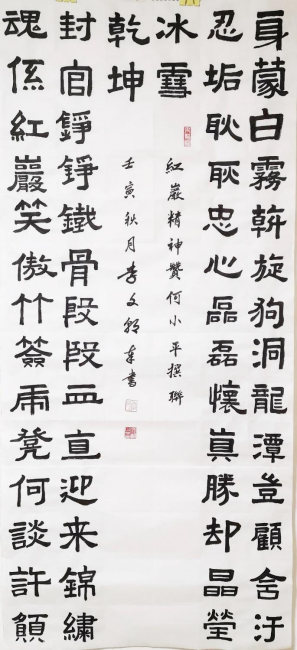 身蒙白霧斡旋狗洞龍潭豈顧含汙
忍垢耿耿忠心磊磊懷真勝却晶瑩
冰雪
紅巖精神贊何小平撰聯
魂係紅巖笑傲竹簽虎凳何談許願
封官錚錚鐵骨段段血直迎来錦繡
乾坤
壬寅秋月李文奉書